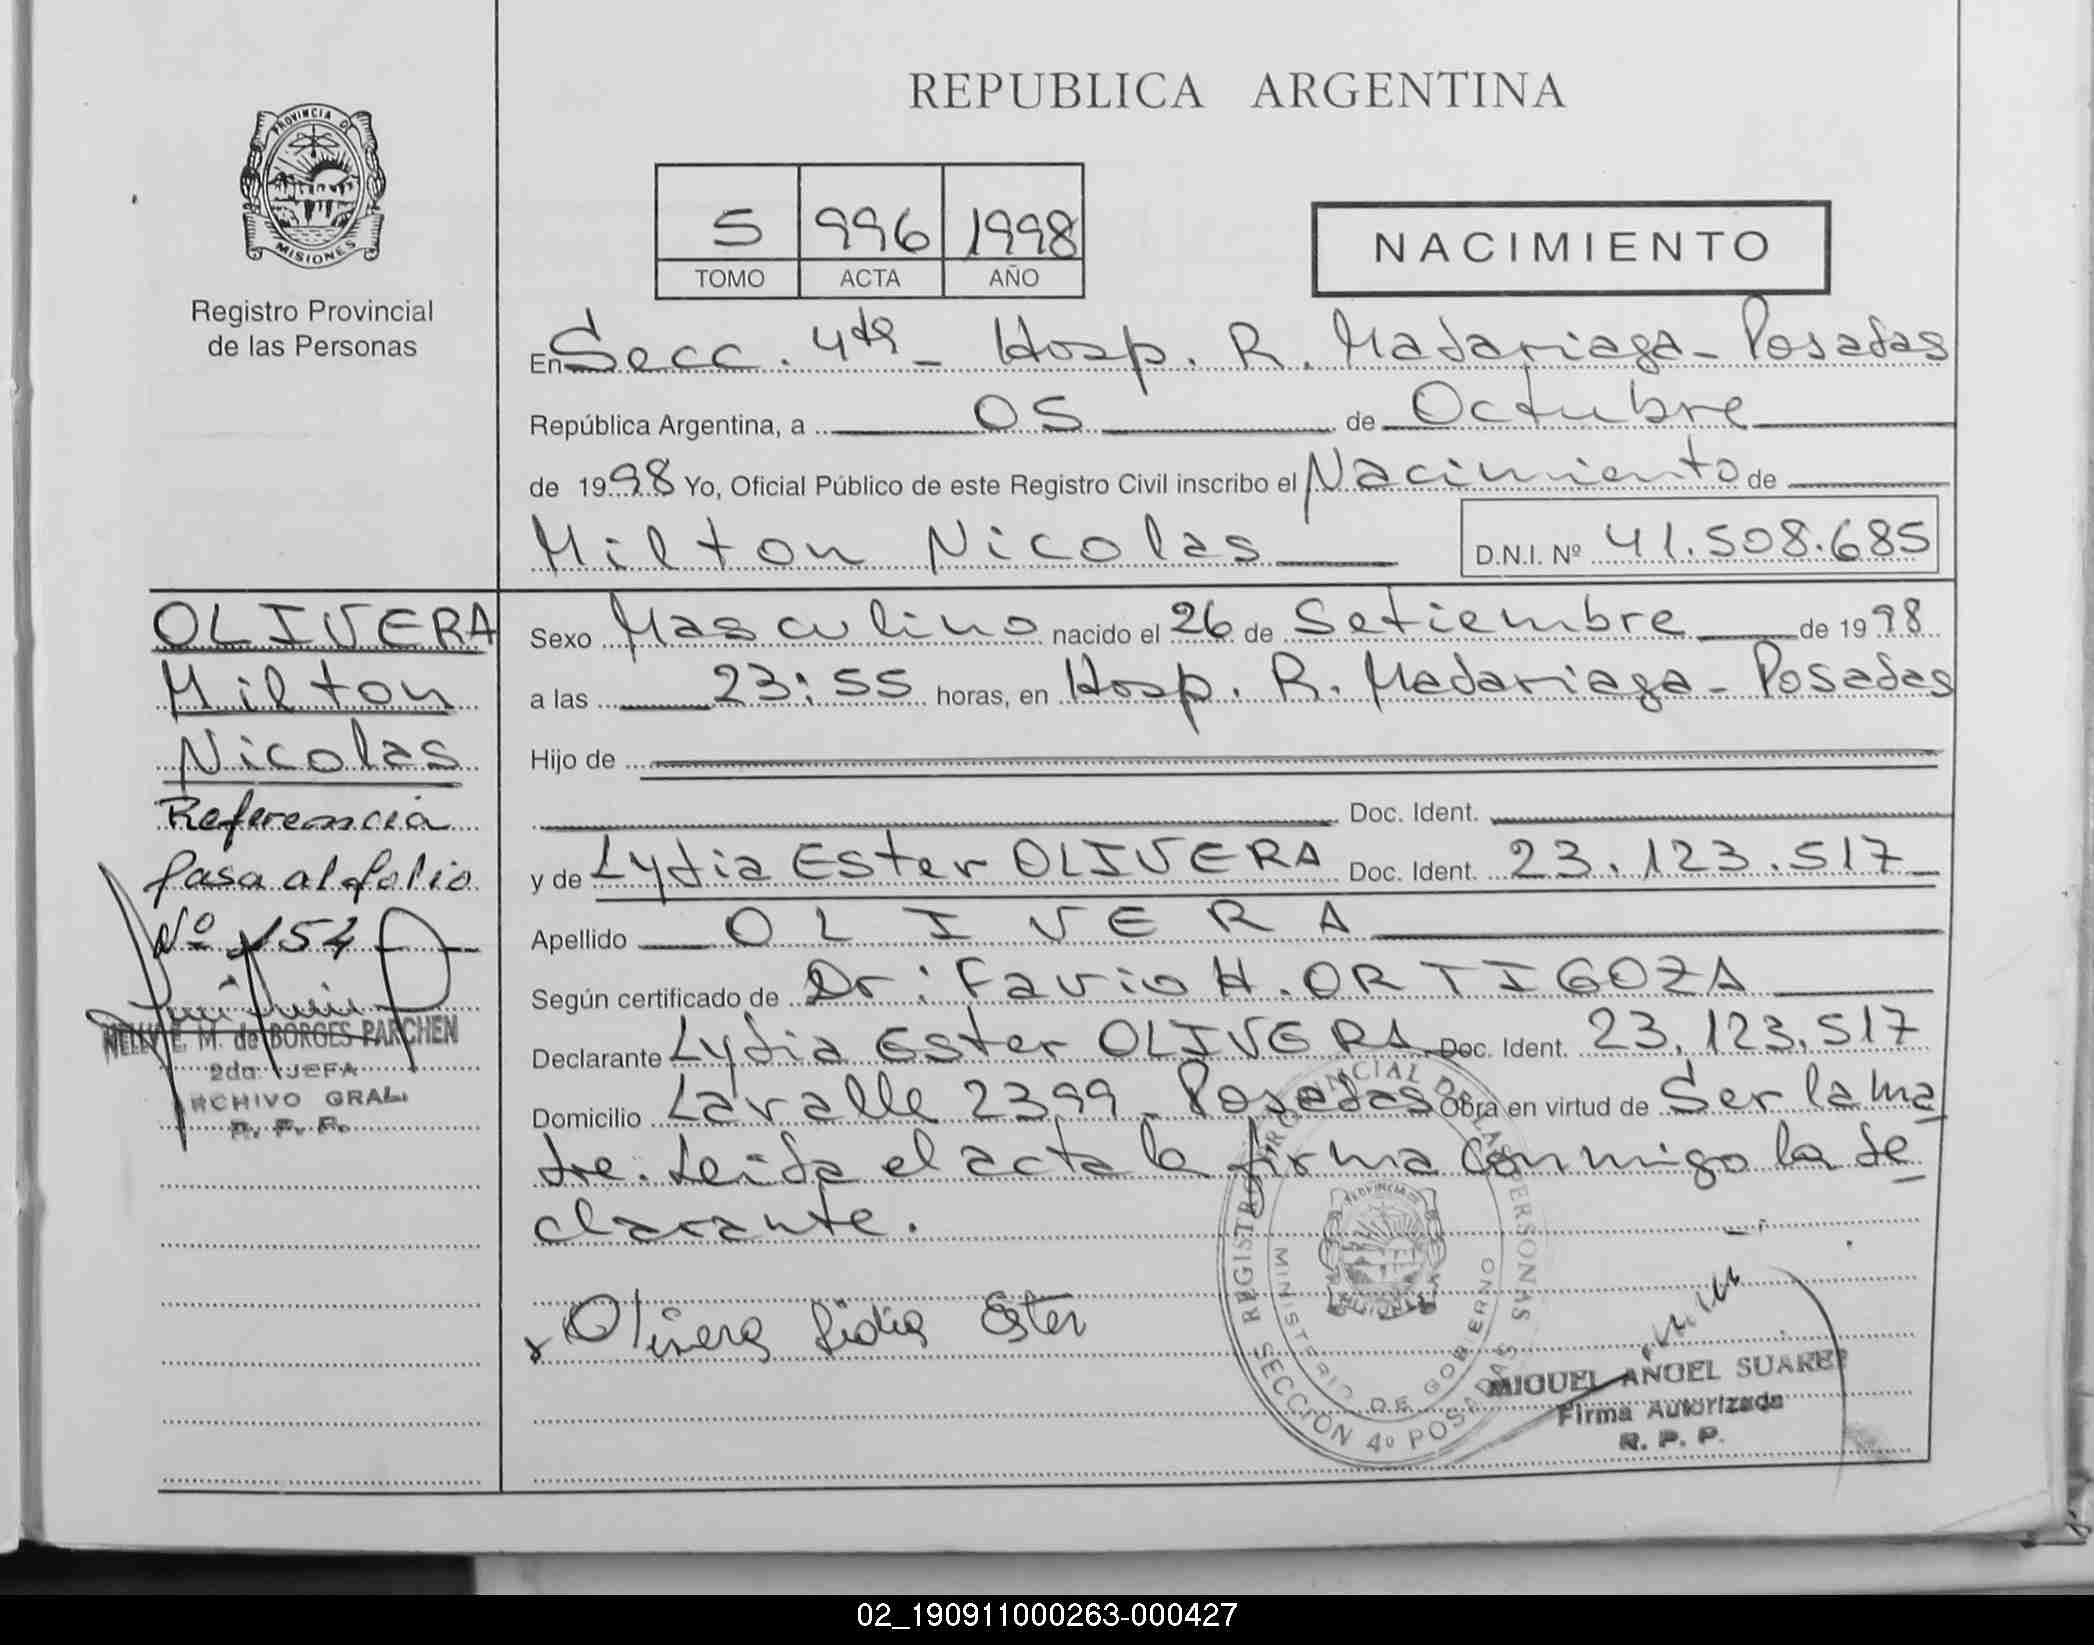 REPUBLICA ARGENTINA
PROVINCIA DE
MISIONES
Registro Provincial
de las Personas
5 996 1998
TOMO ACTA AÑO
NACIMIENTO
En Secc. 4ta - Hosp. R. Madariaga - Posadas
República Argentina, a 05 de Octubre
de 1998 Yo, Oficial Público de este Registro Civil inscribo el Nacimiento de
Milton Nicolas D.N.I. Nº 41.508.685
OLIVERA
Milton
Nicolas
Referencia
pasa al folio
Nº 154
NELLY E. M. de BORGES PARCHEN
2da. JEFA
ARCHIVO GRAL.
R. P. P.
Sexo Masculino nacido el 26 de Setiembre de 1998
a las 23:55 horas, en Hosp. R. Madariaga - Posadas
Hijo de
Doc. Ident.
y de Lydia Ester OLIVERA Doc. Ident. 23.123.517
Apellido OLIVERA
Según certificado de Dr: Favio H. ORTIGOZA
Declarante Lydia Ester OLIVERA Doc. Ident. 23.123.517
Domicilio Lavalle 2399 - Posadas Obra en virtud de Ser la ma
dre. Leida el acta la firma conmigo la de
clarante.
x Olivera Lidia Ester
REGISTRO PROVINCIAL DE LAS PERSONAS
SECCIÓN 4º POSADAS
MINISTERIO DE GOBIERNO
PROVINCIA DE
MISIONES
MIGUEL ANGEL SUAREZ
Firma Autorizada
R. P. P.
02_190911000263-000427